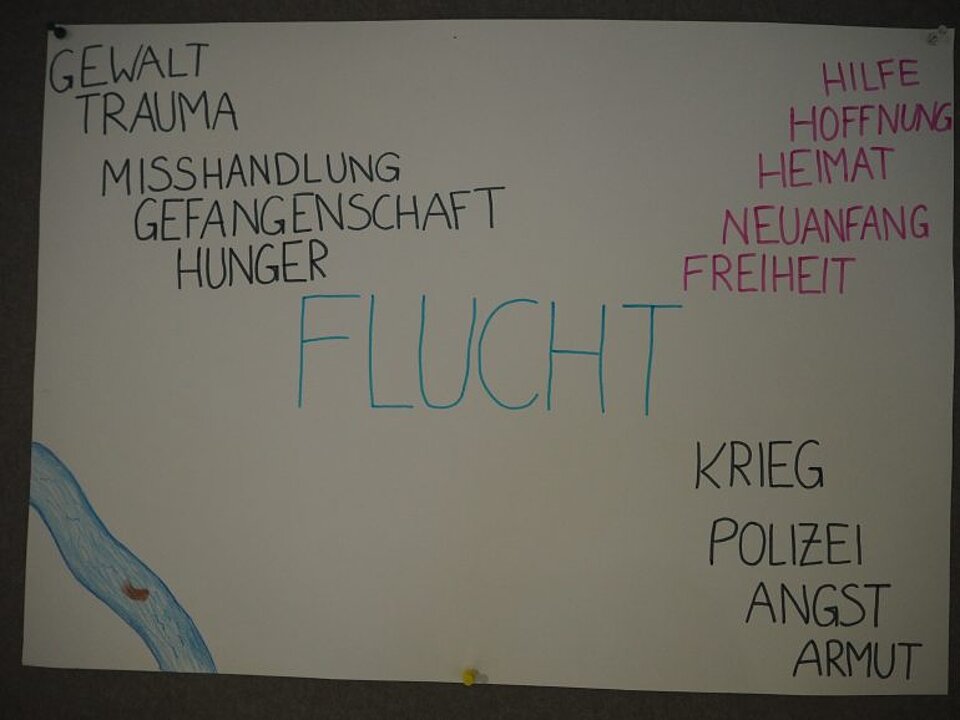 GEWALT
TRAUMA
MISSHANDLUNG
GEFANGENSCHAFT
HUNGER
HILFE
HOFFNUNG
HEIMAT
NEUANFANG
FREIHEIT
FLUCHT
KRIEG
POLIZEI
ANGST
ARMUT